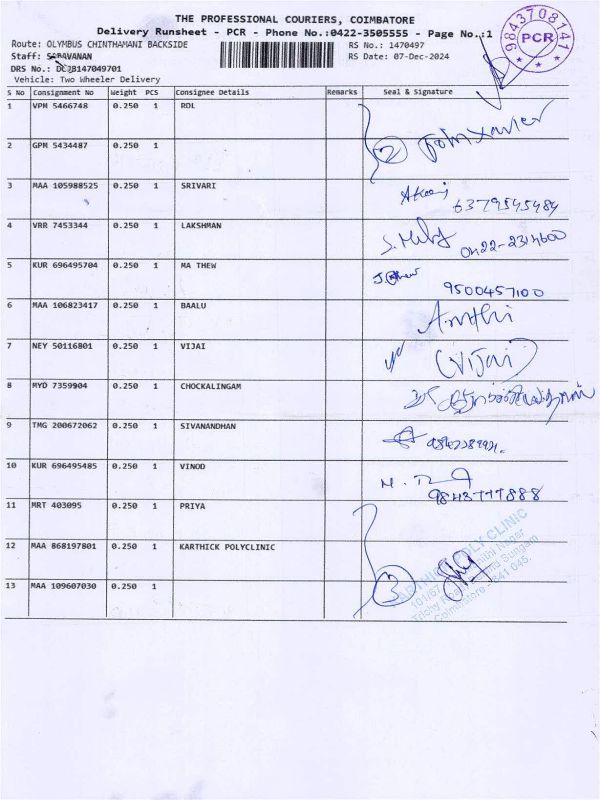 THE PROFESSIONAL COURIERS, COIMBATORE
Delivery Runsheet - PCR - Phone No.:0422-3505555 - Page No.:1
Route: OLYMBUS CHINTHAMANI BACKSIDE
RS No.: 1470497
Staff: SARAVANAN
RS Date: 07-Dec-2024
DRS No.:
Vehicle: Two Wheeler Delivery
9843708141
PCR
S No Consignment No Weight PCS Consignee Details Remarks Seal & Signature
1 VPM 5466748 0.250 1 RDL
2 GPM 5434487 0.250 1 2 John Xavier
3 MAA 105988525 0.250 1 SRIVARI 6379545484
4 VRR 7453344 0.250 1 LAKSHMAN
5 KUR 696495704 0.250 1 MA THEW 9500457100
6 MAA 106823417 0.250 1 BAALU
7 NEY 50116801 0.250 1 VIJAI (Vijai)
8 MYD 7359904 0.250 1 CHOCKALINGAM
9 TMG 200672062 0.250 1 SIVANANDHAN
10 KUR 696495485 0.250 1 VINOD 9843777888
11 MRT 403095 0.250 1 PRIYA
12 MAA 868197801 0.250 1 KARTHICK POLYCLINIC
13 MAA 109607030 0.250 1 3
POLY CLINIC